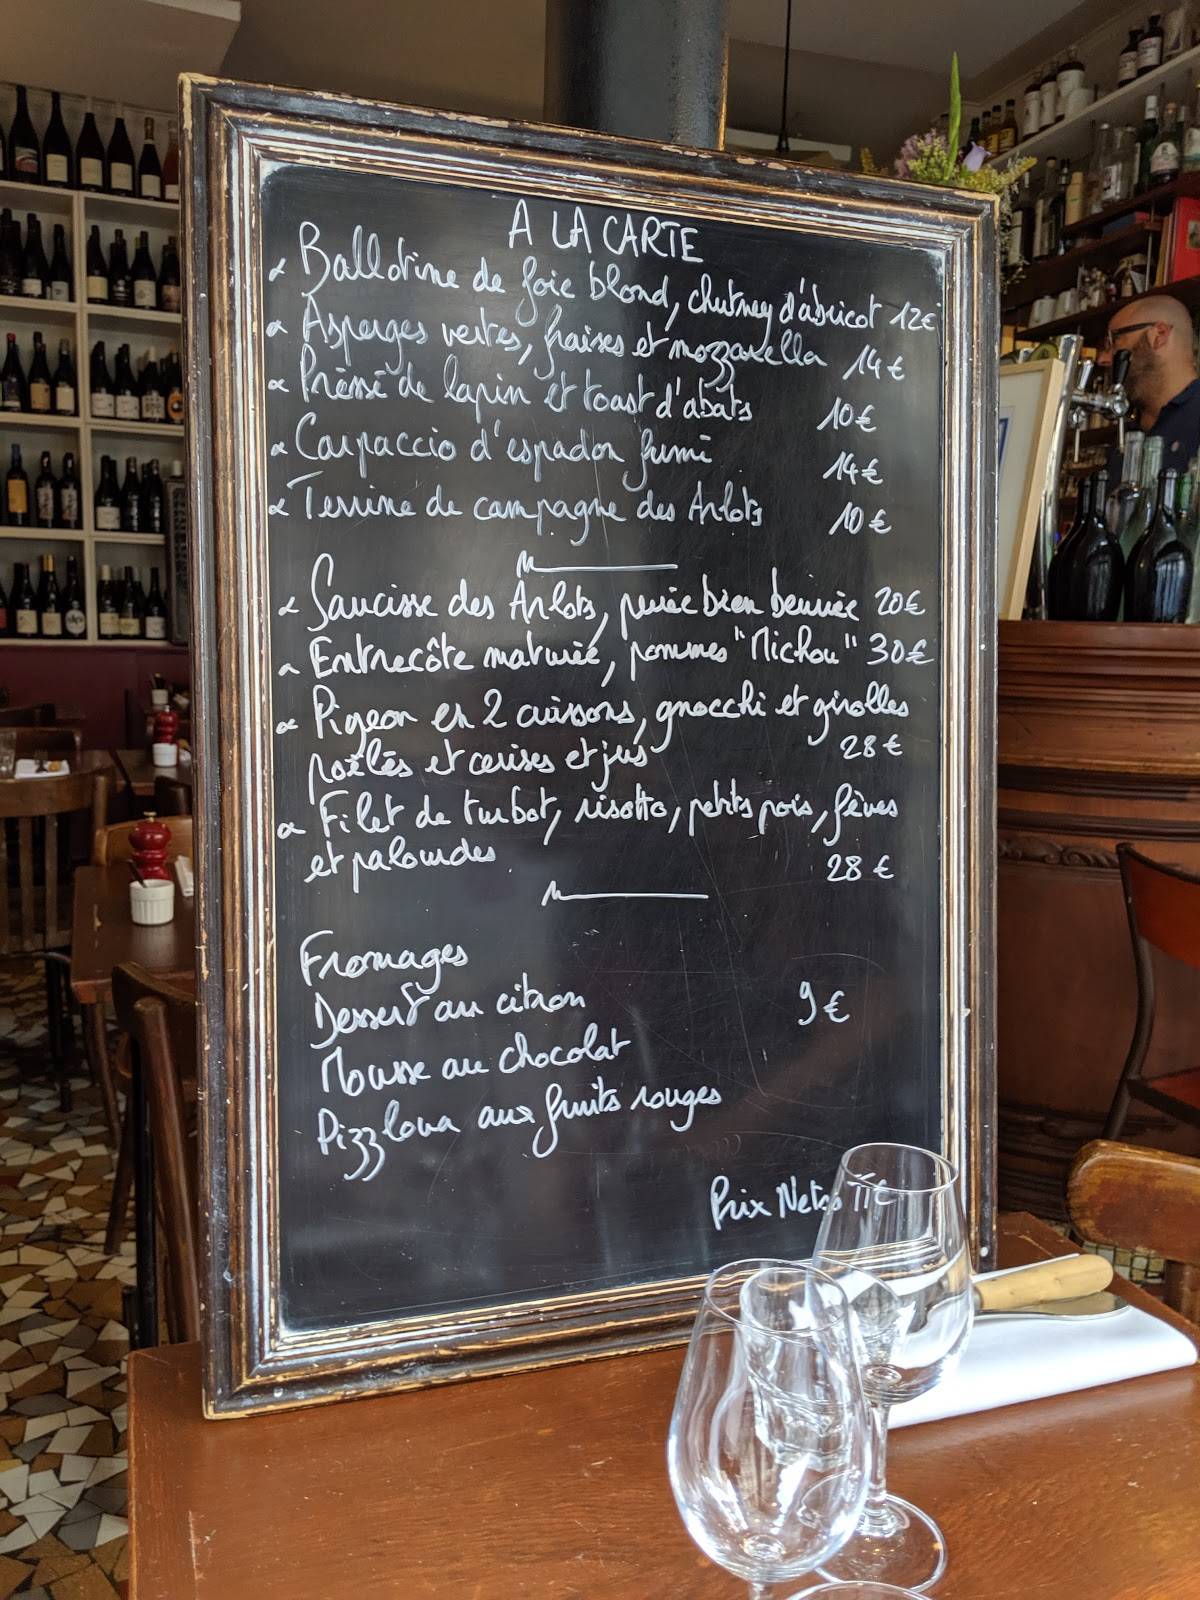 A LA CARTE
Ballotine de foie blond, chutney d'abricot 12€
Asperges vertes, fraises et mozzarella 14€
Préssé de lapin et toast d'abats 10€
Carpaccio d'espadon fumé 14€
Terrine de campagne des Arlots 10€
Saucisse des Arlots, purée bien beurrée 20€
Entrecôte maturée, pommes "Michou" 30€
Pigeon en 2 cuissons, gnocchi et girolles
poêlés et cerises et jus 28€
Filet de turbot, risotto, petits pois, fèves
et palourdes 28€
Fromages
Dessert au citron 9€
Mousse au chocolat
Pizzlova aux fruits rouges
Prix Nets